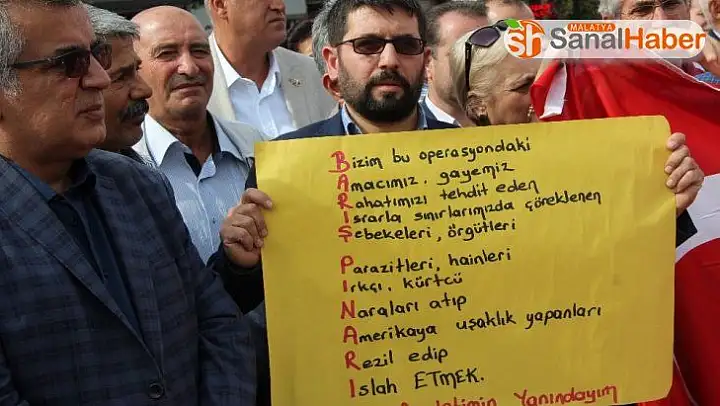 MALATYA
SH SanalHaber
Bizim bu operasyondaki
Amacımız, gayemiz
Rahatımızı tehdit eden
Israrla sınırlarımızda çöreklenen
Şebekeleri, örgütleri
Parazitleri, hainleri
Irkçı, kürtcü
Naraları atıp
Amerikaya uşaklık yapanları
Rezil edip
Islah ETMEK.
Yanındayım